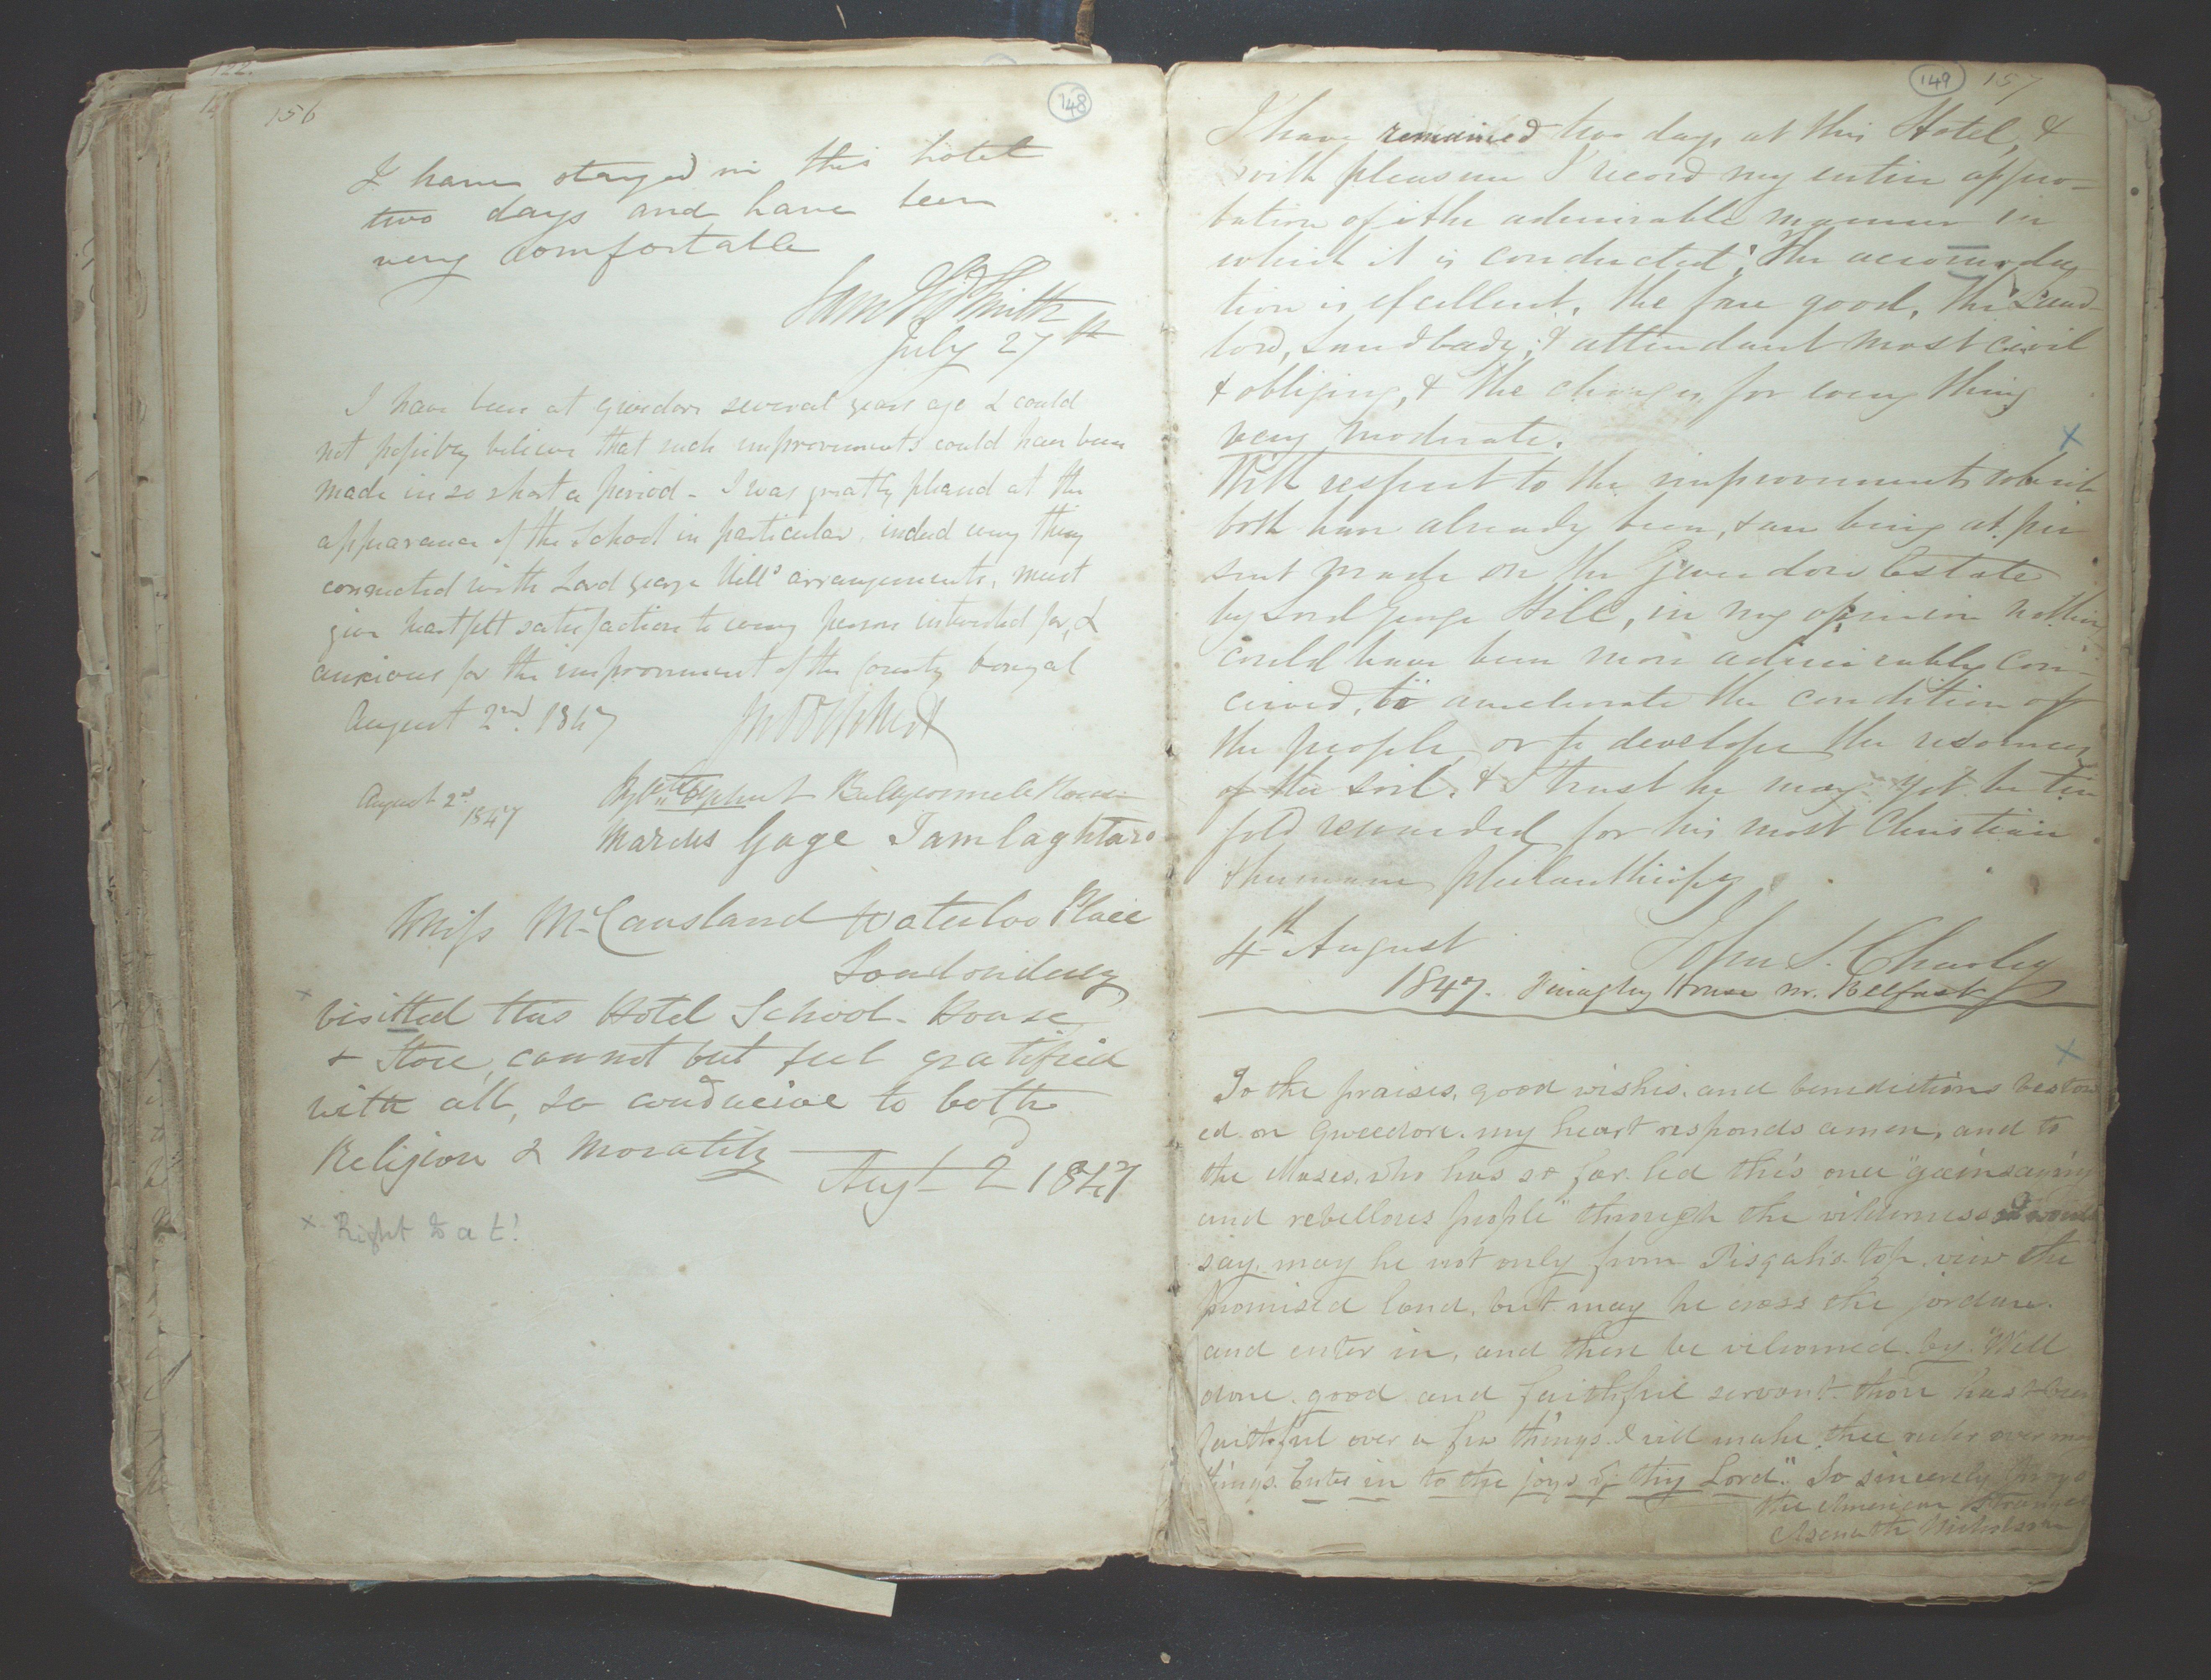 122.
156
148
I have stayed in this hotel
two days and have been
very comfortable
Saml Smith
July 27th
I have been at Gweedore several years ago & could
not possibly believe that such improvements could have been
made in so short a period - I was greatly pleased at the
appearance of the School in particular, indeed every thing
connected with Lord George Hill's arrangements, must
give heartfelt satisfaction to every person interested for, &
anxious for the improvement of the County Donegal
August 2nd. 1847
August 2nd 1847
Olphert Ballyconnell House
Marcus Gage Tamlaghtard
Miss McCausland Waterloo Place
Londonderry
visitted this Hotel School-House
& Store, cannot but feel gratified
with all, so conducive to both
Religion & Morality
Augt 2d 1847
x Right to a t!
149 157
I have remained two days at this Hotel, &
with pleasure I record my entire appro-
bation of the admirable manner in
which it is conducted; the accomoda
tion is excellent, the fare good, the Land-
lord, Landlady, & attendant most civil
& obliging, & the charges for every thing
very moderate.
x
With respect to the improvements which
both have already been, & are being at pre
sent made on the Gweedore Estate
by Lord George Hill, in my opinion nothing
could have been more admirably con-
ceived, to ameliorate the condition of
the people, or to develope the resources
of the soil, & I trust he may yet be ten
fold rewarded for his most Christian
& humane philanthropy.
4th August John S. Charley
1847. Finaghy House nr. Belfast
x
To the praises, good wishes, and benedictions bestow
ed on Gweedore. my heart responds amen, and to
the Moses, who has so far led this once "gainsaying
and rebellous people" through the wilderness I would
say, may he not only from Pisgahs top, view the
promised land, but may he cross the jordan.
and enter in, and there be welcomed by. "Well
done good and faithful servant. thou hast been
faithful over a few things I will make thee ruler over many
things. Enter in to the joys of thy Lord." So sincerely prays
the American Stranger
Asenath Nicholson